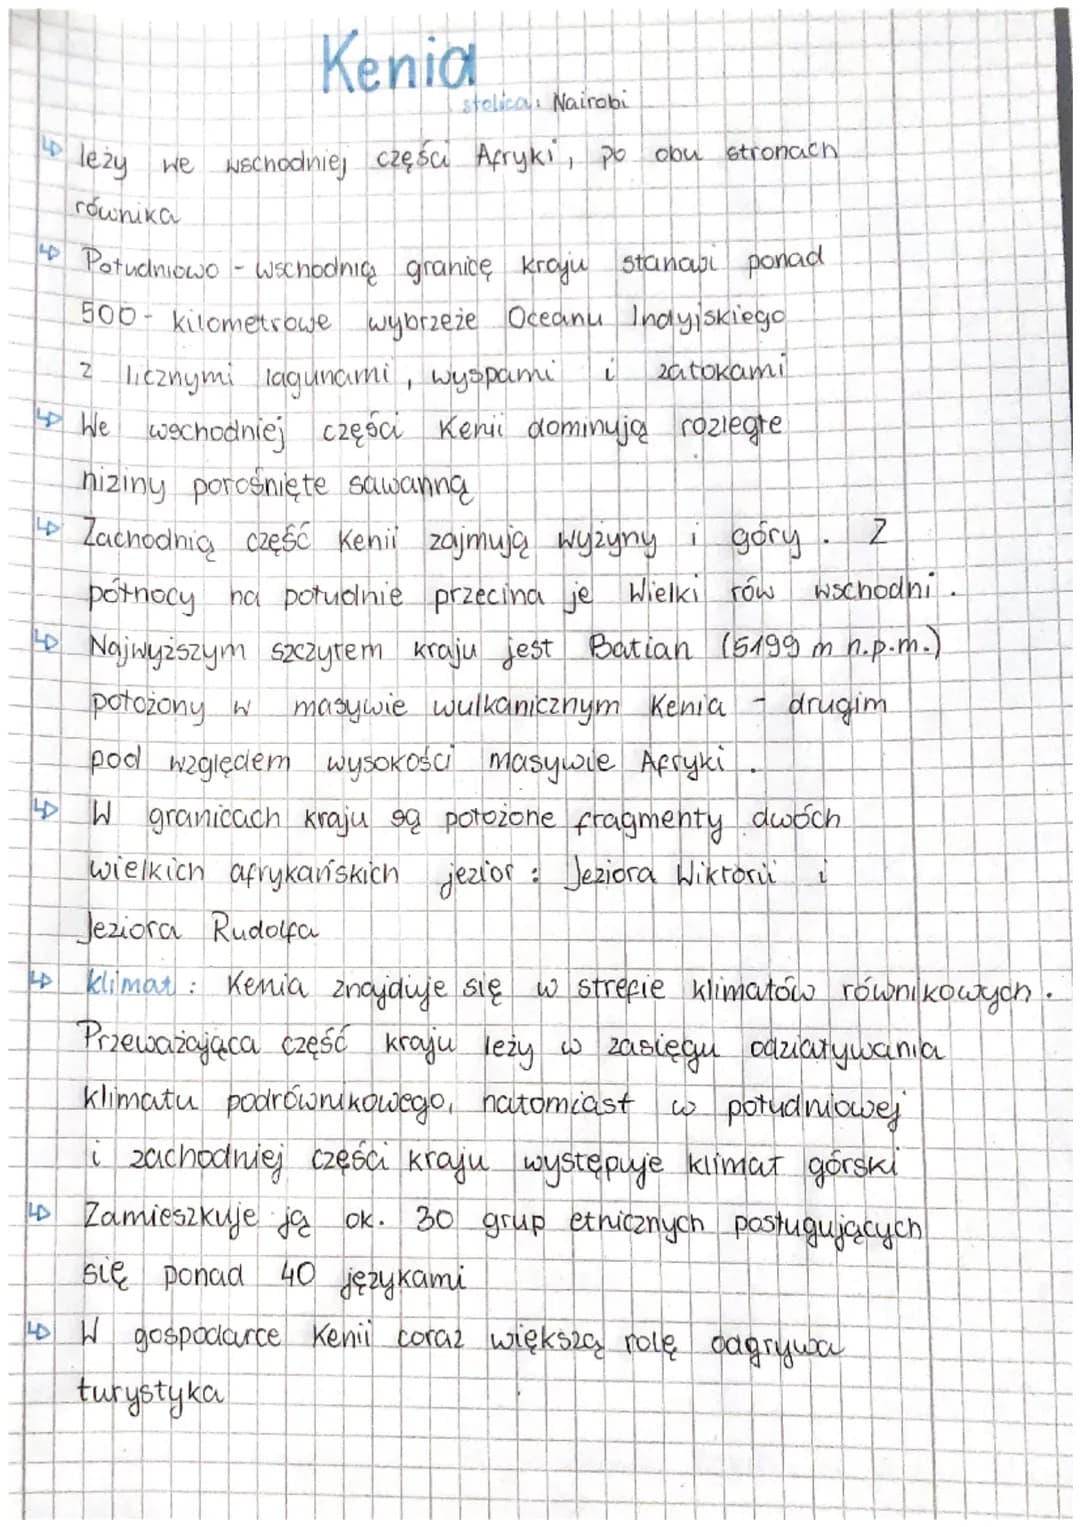 Kenia
stolica: Nairobi
↳ leży we wschodniej części Afryki, po obu stronach
równika
↳ Południowo - wschodnią granicę kraju stanowi ponad
500- kilometrowe wybrzeże Oceanu Indyjskiego
z licznymi lagunami, wyspami i zatokami
↳ We wschodniej części Kenii dominują rozległe
niziny porośnięte sawanną
↳ Zachodnią część Kenii zajmują wyżyny i góry. Z
północy na południe przecina je Wielki rów wschodni.
↳ Najwyższym szczytem kraju jest Batian (5199 m n.p.m.)
położony w masywie wulkanicznym Kenia - drugim
pod względem wysokości masywie Afryki.
↳ W granicach kraju są położone fragmenty dwóch
wielkich afrykańskich jezior: Jeziora Wiktorii i
Jeziora Rudolfa
↳ klimat: Kenia znajduje się w strefie klimatów równikowych.
Przeważająca część kraju leży w zasięgu odziaływania
klimatu podrównikowego, natomiast w południowej
i zachodniej części kraju występuje klimat górski
↳ Zamieszkuje ją ok. 30 grup etnicznych posługujących
się ponad 40 językami
↳ W gospodarce Kenii coraz większą rolę odgrywa
turystyka